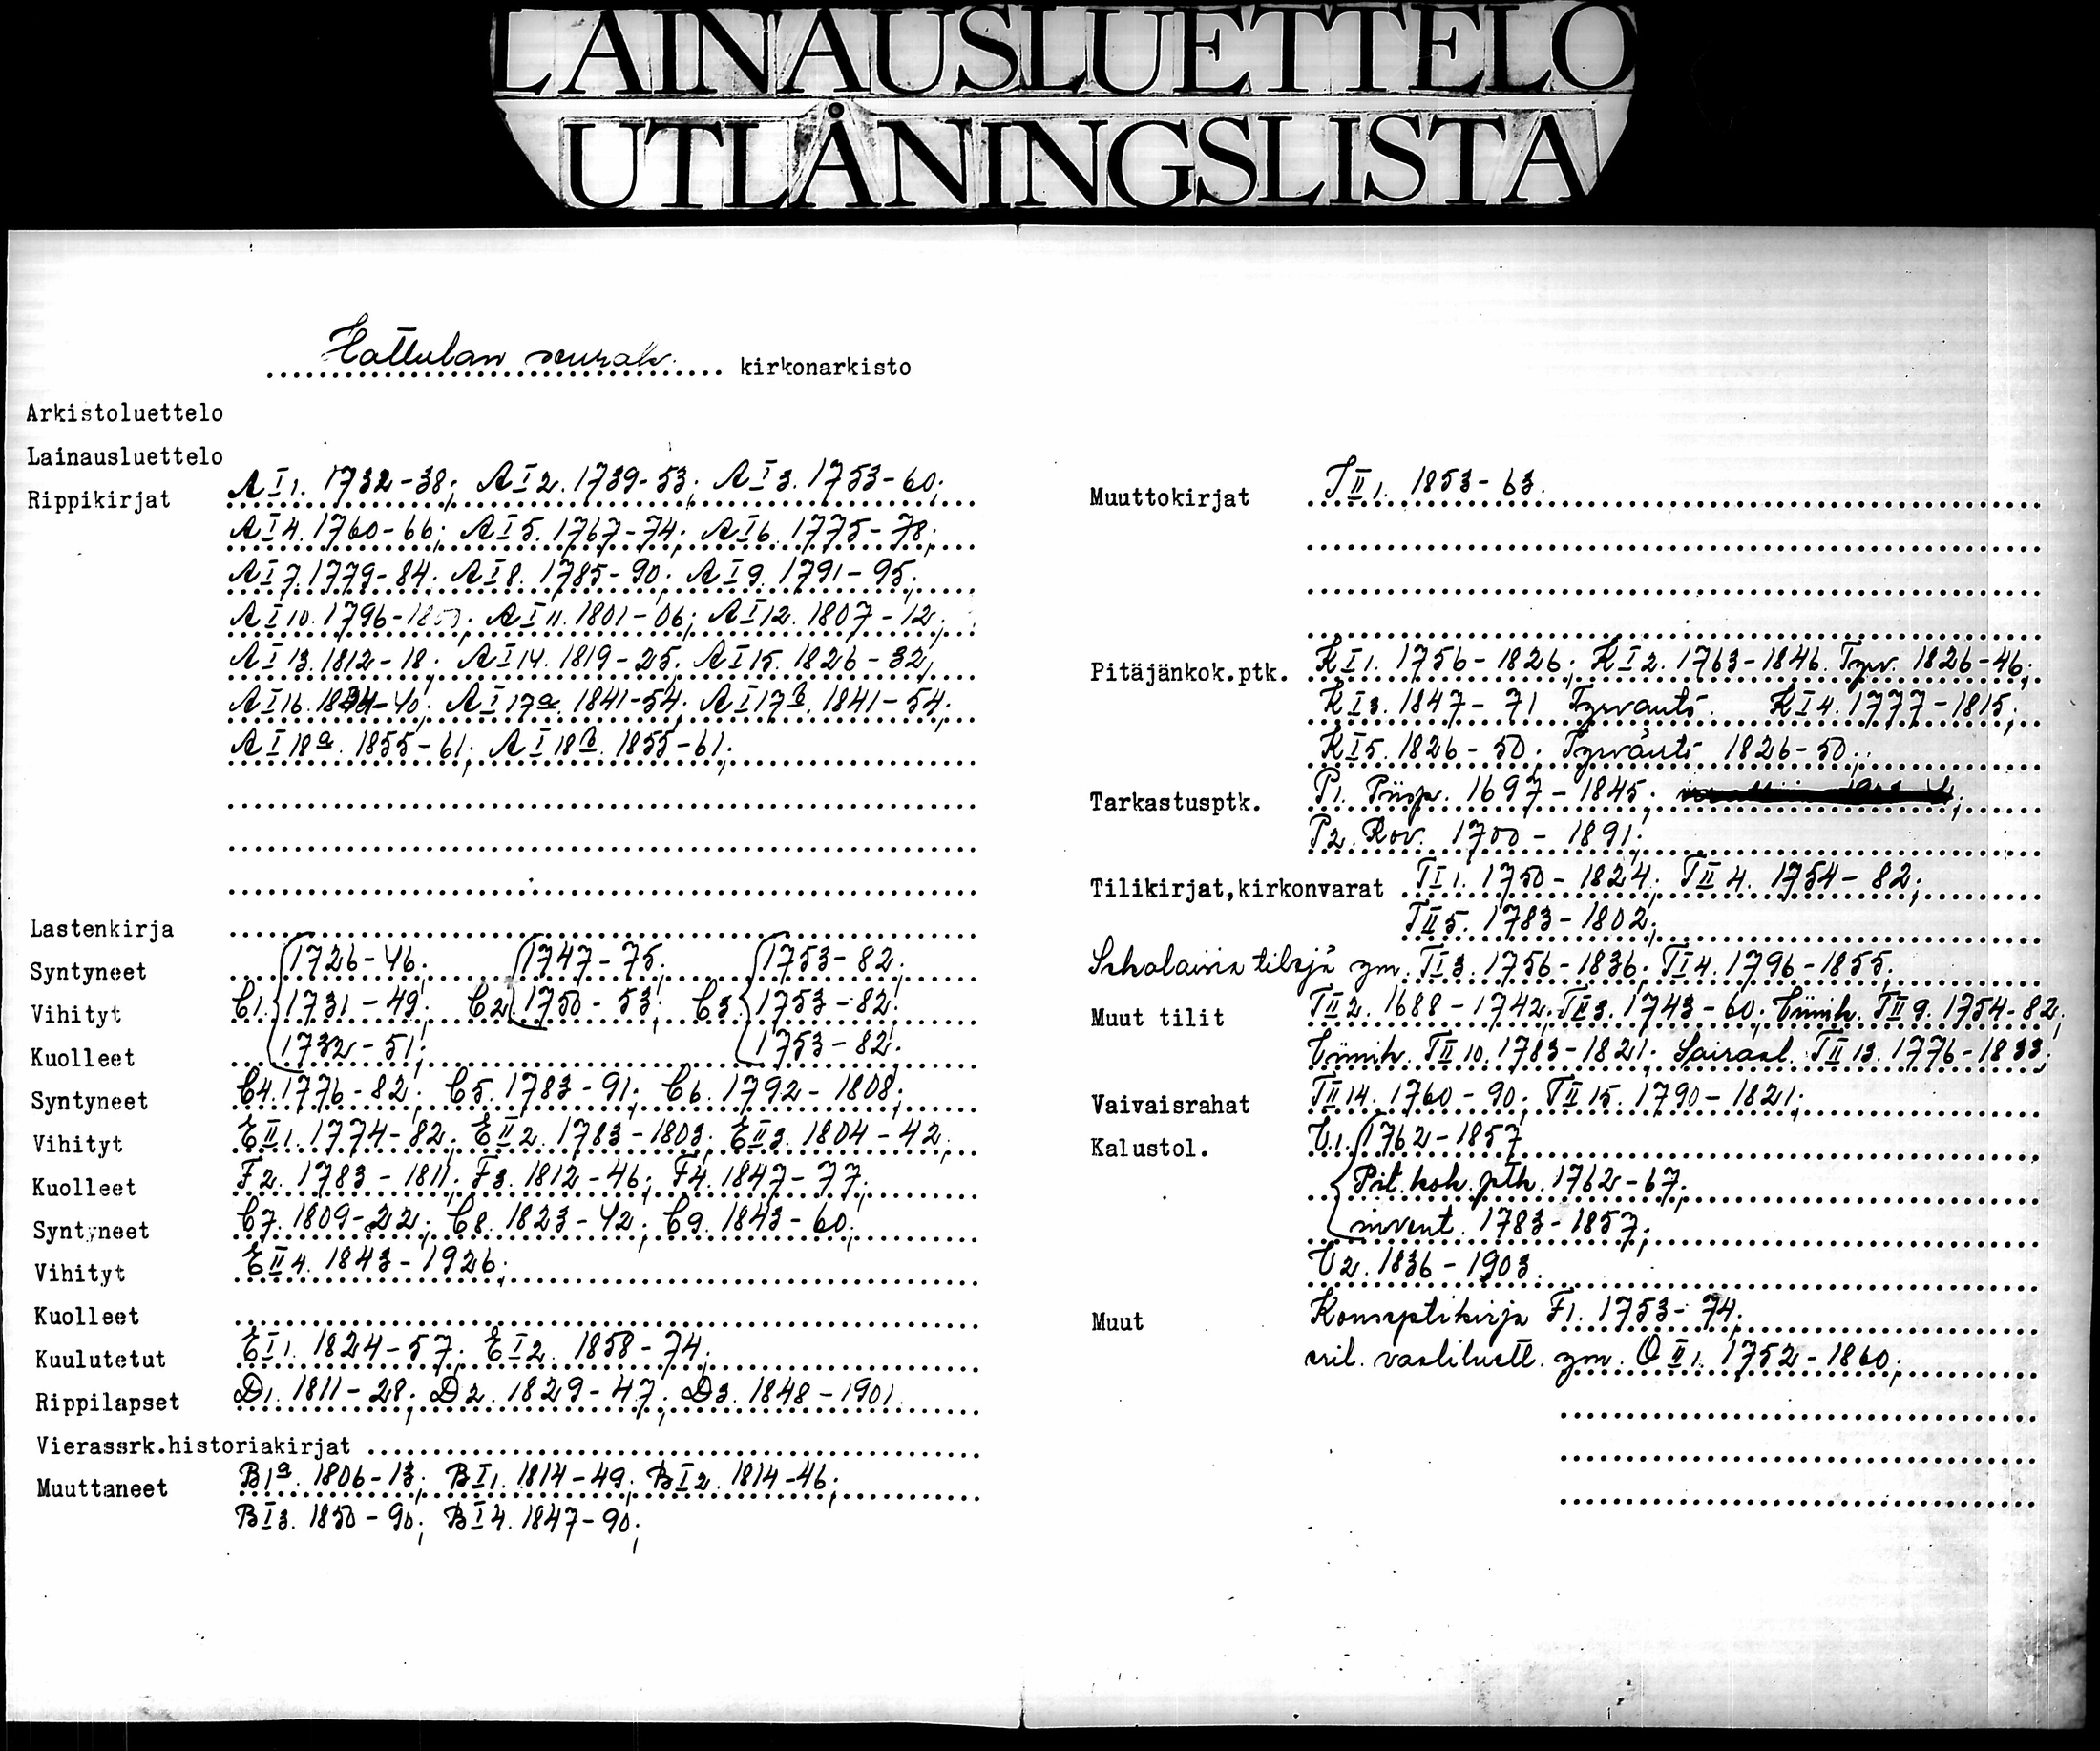 LAINAUSLUETTELO
UTLÅNINGSLISTA
Hattulan seurak. kirkonarkisto
Arkistoluettelo
Lainausluettelo
Rippikirjat A I 1. 1732-38; A I 2. 1739-53; A I 3. 1753-60;
A I 4. 1760-66; A I 5. 1767-74; A I 6. 1775-78;
A I 7. 1779-84; A I 8. 1785-90; A I 9. 1791-95;
A I 10. 1796-1800; A I 11. 1801-06; A I 12. 1807-12;
A I 13. 1812-18; A I 14. 1819-25; A I 15. 1826-32;
A I 16. 1834-40; A I 17a. 1841-54; A I 17b. 1841-54;
A I 18a. 1855-61; A I 18b. 1855-61;
Lastenkirja
Syntyneet 1726-46; 1747-75; 1753-82;
Vihityt C1. 1731-49; C2. 1750-53; C3. 1753-82;
Kuolleet 1732-51; 1753-82;
Syntyneet C4. 1776-82; C5. 1783-91; C6. 1792-1808;
Vihityt E II 1. 1774-82; E II 2. 1783-1803; E II 3. 1804-42;
Kuolleet F2. 1783-1811; F3. 1812-46; F4. 1847-77;
Syntyneet C7. 1809-22; C8. 1823-42; C9. 1843-60;
Vihityt E II 4. 1843-1926;
Kuolleet
Kuulutetut E I 1. 1824-57; E I 2. 1858-74;
Rippilapset D1. 1811-28; D2. 1829-47; D3. 1848-1901.
Vierassrk.historiakirjat
Muuttaneet B1a. 1806-13; B I 1. 1814-49; B I 2. 1814-46;
B I 3. 1850-90; B I 4. 1847-90;
Muuttokirjat T II 1. 1853-63.
Pitäjänkok.ptk. K I 1. 1756-1826; K I 2. 1763-1846. Tyrv. 1826-46;
K I 3. 1847-71 Tyrväntö. K I 4. 1777-1815;
K I 5. 1826-50; Tyrväntö 1826-50;
Tarkastusptk. P1. Piisp. 1697-1845;
P2. Rov. 1700-1891;
Tilikirjat,kirkonvarat T I 1. 1750-1824; T II 4. 1754-82;
T II 5. 1783-1802;
Sekalaisia tilejä ym. T I 3. 1756-1836; T I 4. 1796-1855;
Muut tilit T II 2. 1688-1742; T II 3. 1743-60; T II 9. 1754-82;
T II 10. 1783-1821; Sairaal. T II 13. 1776-1833;
Vaivaisrahat T II 14. 1760-90; T II 15. 1790-1821;
Kalustol. U1. 1762-1857
Pit. kok. ptk. 1762-67;
invent. 1783-1857;
U2. 1836-1903.
Muut Konseptikirja F1. 1753-74;
vaaliluett. ym. O II 1. 1752-1860;